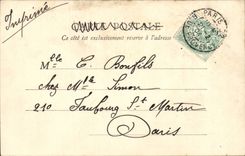 Imprimé
Ce côté est exclusivement réservé à l'adresse
PARIS
Mlle C. Bonfils
chez Mme Simon
210 Faubourg St Martin
Paris